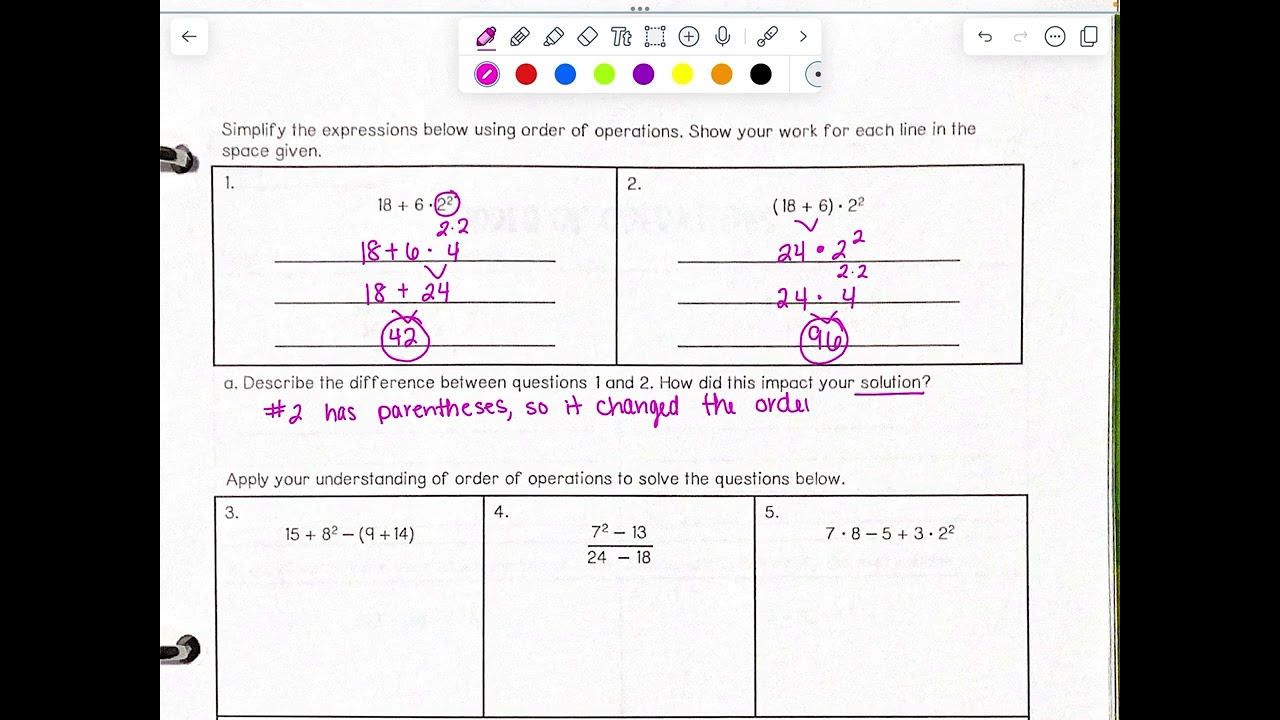 Tt
Simplify the expressions below using order of operations. Show your work for each line in the
space given.
1.
18 + 6 · 2²
2·2
18 + 6 · 4
18 + 24
42
2.
(18 + 6) · 2²
24 · 2²
2·2
24 · 4
96
a. Describe the difference between questions 1 and 2. How did this impact your solution?
#2 has parentheses, so it changed the order
Apply your understanding of order of operations to solve the questions below.
3.
15 + 8² – (9 + 14)
4.
7² – 13
24 – 18
5.
7 · 8 – 5 + 3 · 2²